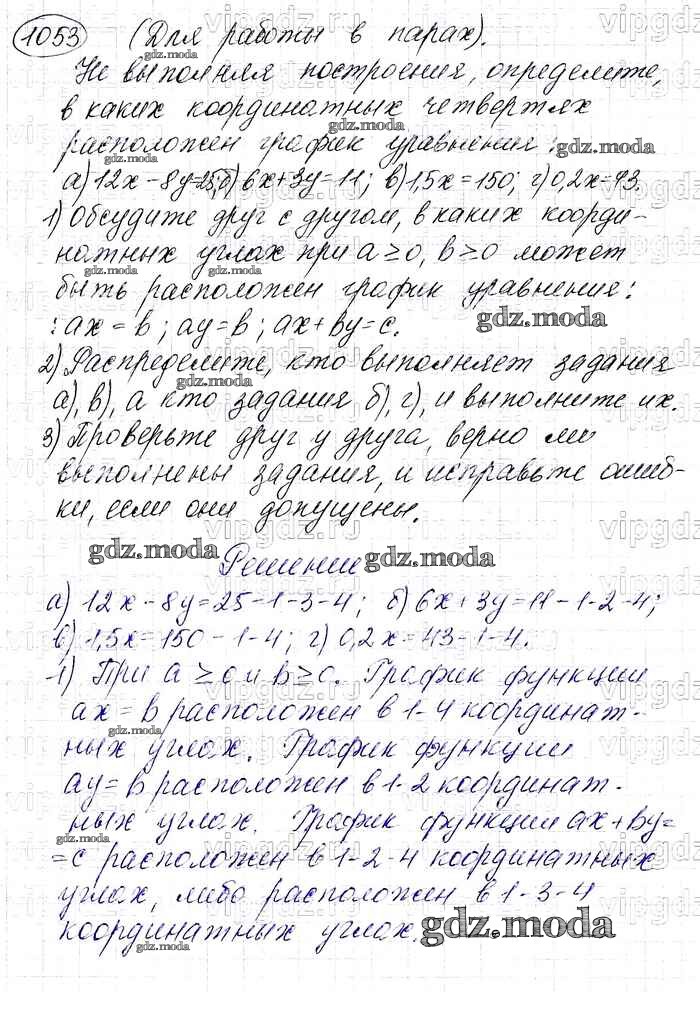 1053 (Для работы в парах).
Не выполняя построения, определите,
в каких координатных четвертях
расположен график уравнения:
а) 12x-8y=25; б) 6x+3y=11; в) 1,5x=150; г) 0,2x=43.
1) Обсудите друг с другом, в каких коорди-
натных углах при a≥0, b≥0 может
быть расположен график уравнения:
: ax=b; ay=b; ax+by=c.
2) Распределите, кто выполняет задания
а), в), а кто задания б), г), и выполните их.
3) Проверьте друг у друга, верно ли
выполнены задания, и исправьте ошиб-
ки, если они допущены.
Решение
а) 12x-8y=25-1-3-4; б) 6x+3y=11-1-2-4;
в) 1,5x=150-1-4; г) 0,2x=43-1-4.
1) При a≥0 и b≥0. График функции
ax=b расположен в 1-4 координат-
ных углах. График функции
ay=b расположен в 1-2 координат-
ных углах. График функции ax+by=
=c расположен в 1-2-4 координатных
углах, либо расположен в 1-3-4
координатных углах.
gdz.moda
vipgdz.ru